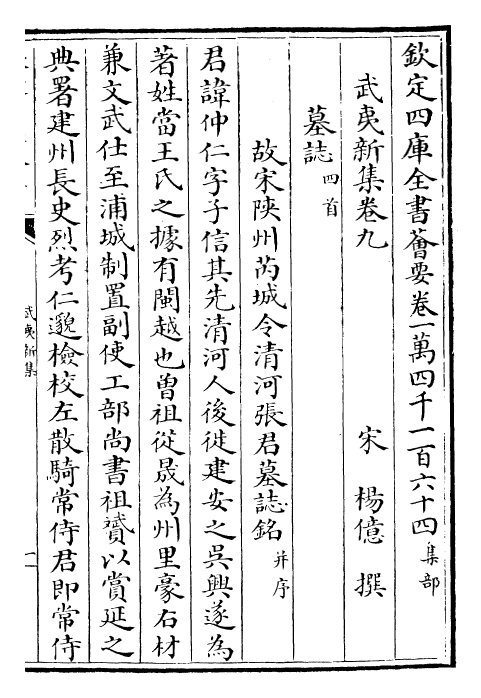 欽定四庫全書薈要卷一萬四千一百六十四 集部
武夷新集卷九 宋 楊億 撰
墓誌 四首
故宋陜州芮城令清河張君墓誌銘 并序
君諱仲仁字子信其先清河人後徙建安之吳興遂為
著姓當王氏之據有閩越也曾祖從晟為州里豪右材
兼文武仕至浦城制置副使工部尚書祖贇以賞延之
典署建州長史烈考仁邈檢校左散騎常侍君即常侍
武夷新集
一